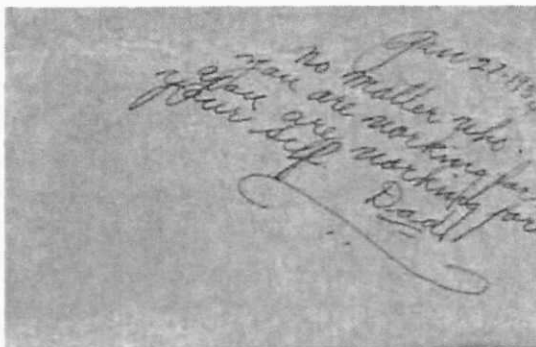 no matter who
you are working for
you are working for
your self
Dad